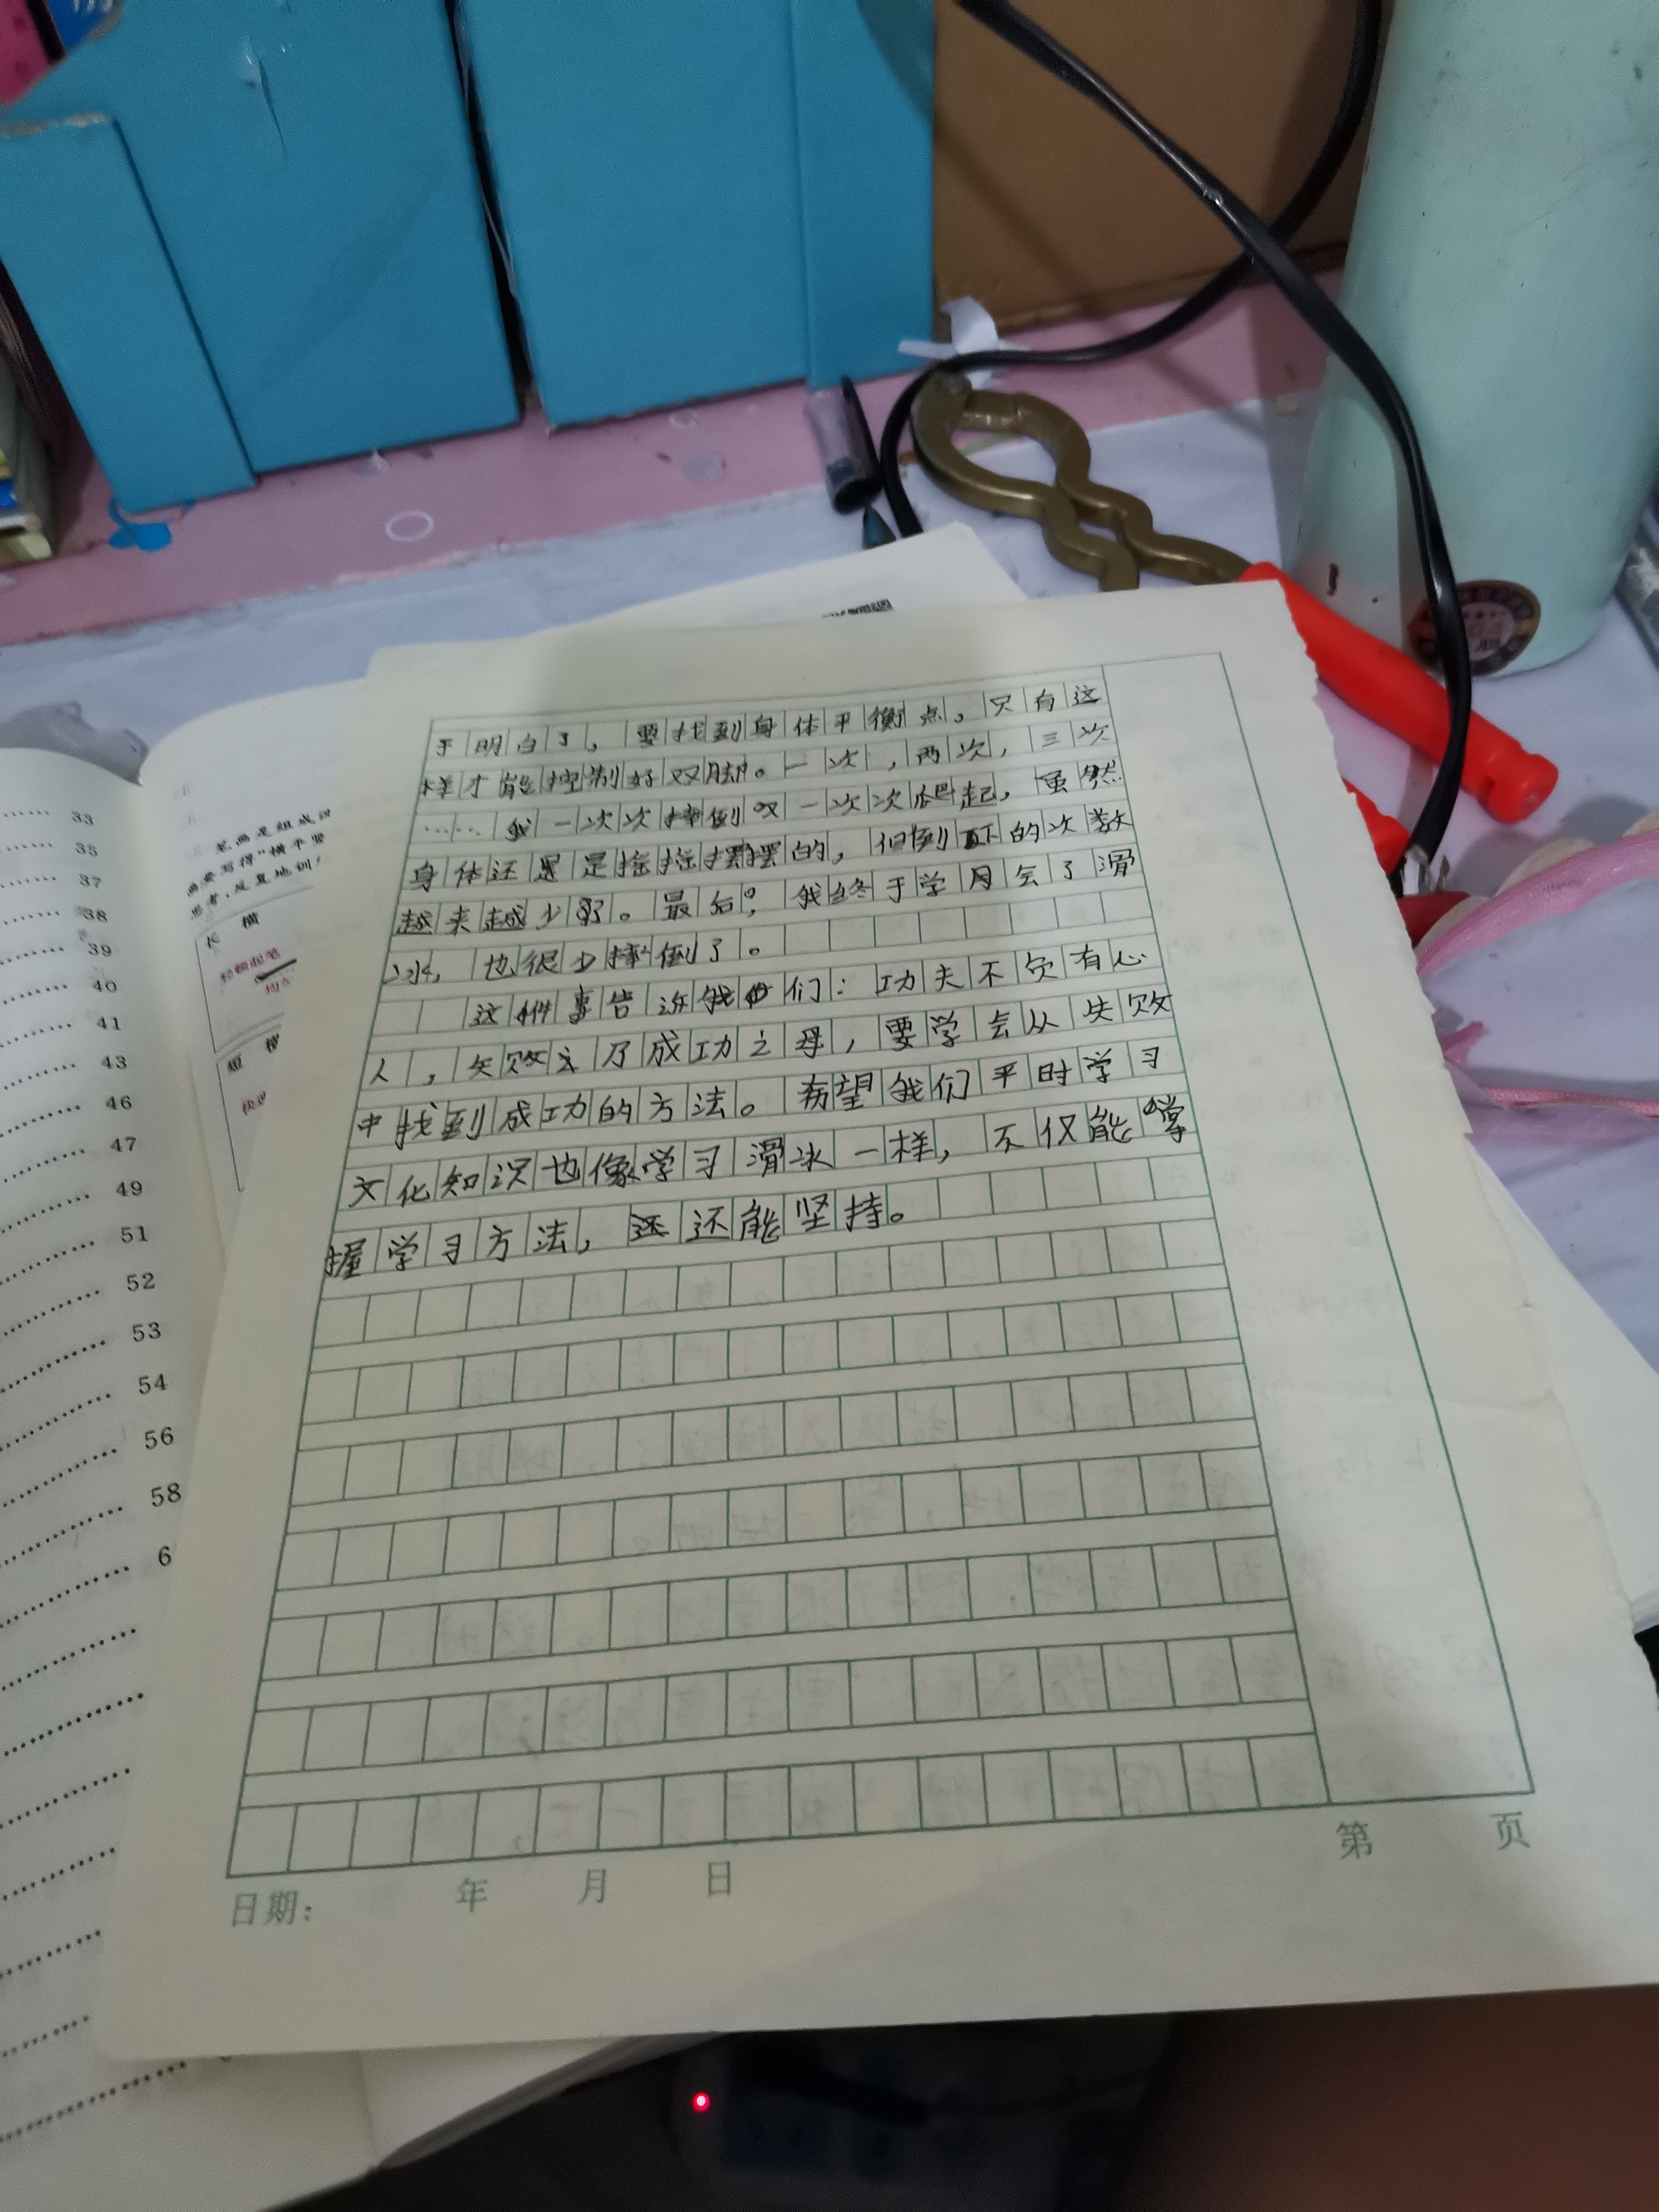 于明白了，要找到身体平衡点，只有这
样才能控制好双脚。一次，两次，三次
……我一次次摔倒又一次次爬起，虽然
身体还是摇摇摆摆的，但倒下的次数
越来越少了。最后，我终于学会了滑
冰，也很少摔倒了。
这件事告诉我们：功夫不负有心
人，失败乃成功之母，要学会从失败
中找到成功的方法。希望我们平时学习
文化知识也像学习滑冰一样，不仅能掌
握学习方法，还能坚持。
日期： 年 月 日
第 页
33
35
37
38
39
40
41
43
46
47
49
51
52
53
54
56
58
6
笔画是组成汉
画要写得“横平竖
思考，反复地训
长 横
轻顿起笔
短 横
快速